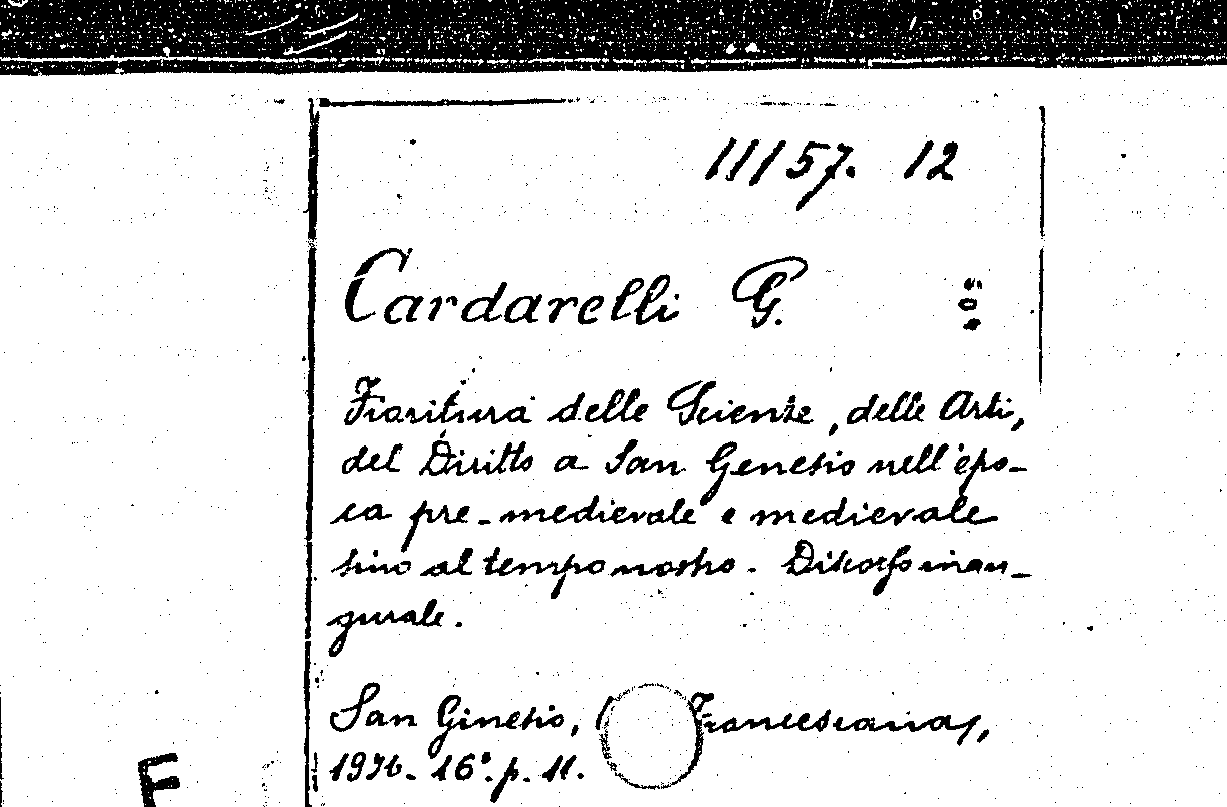 11157. 12
Cardarelli G.
Fioritura delle Scienze, delle Arti,
del Diritto a San Genesio nell'epo-
ca pre-medievale e medievale
sino al tempo nostro. Discorso inau-
gurale.
San Ginesio, ( Francescana),
16°. p. 11.
F